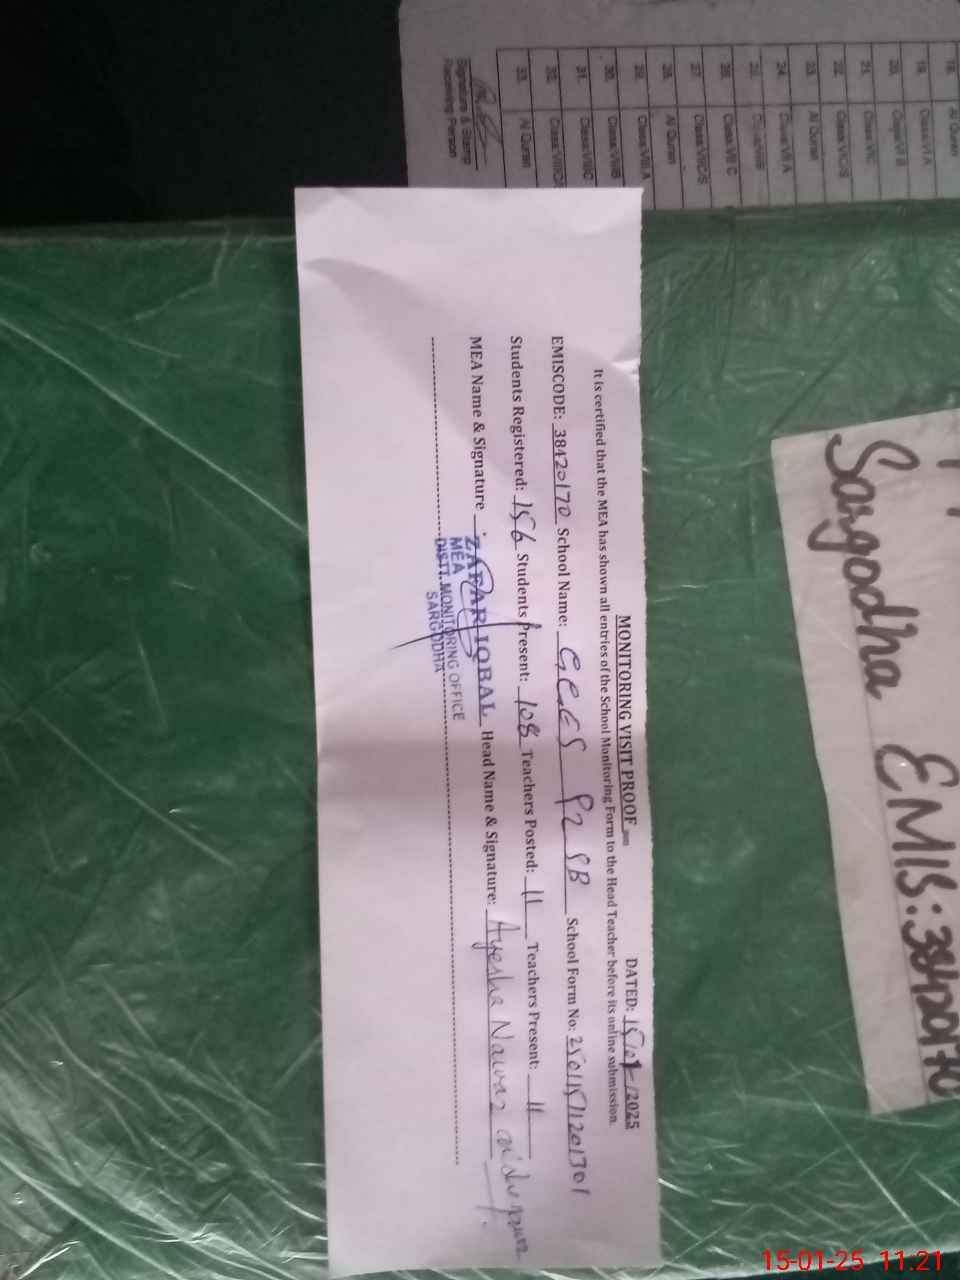 MONITORING VISIT PROOF DATED: 15/01/2025
It is certified that the MEA has shown all entries of the School Monitoring Form to the Head Teacher before its online submission.
EMISCODE: 38420170 School Name: GGES 92 SB School Form No:
Students Registered: 156 Students Present: 108 Teachers Posted: 11 Teachers Present: 11
MEA Name & Signature Head Name & Signature: Ayesha Nawaz
ZAFAR IQBAL
MEA
DISTT. MONITORING OFFICE
SARGODHA
Sargodha EMIS: 38420170
18. Al Quran
19. Class VI A
20. Class VI B
21. Class VI C
22. Class VI C/S
23. Al Quran
24. Class VII A
25. Class VII B
26. Class VII C
27. Class VII C/S
28. Al Quran
29. Class VIII A
30. Class VIII B
31. Class VIII C
32. Class VIII C/
33. Al Quran
Signature & Stamp
Receiving Person
15-01-25 11:21